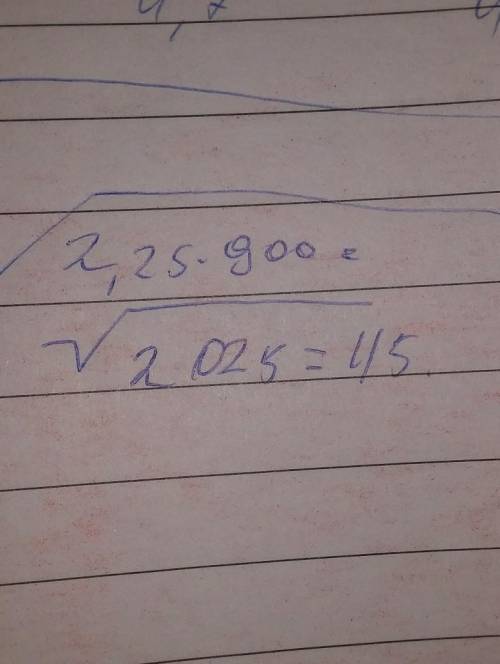 √2,25·900=
√2025=45